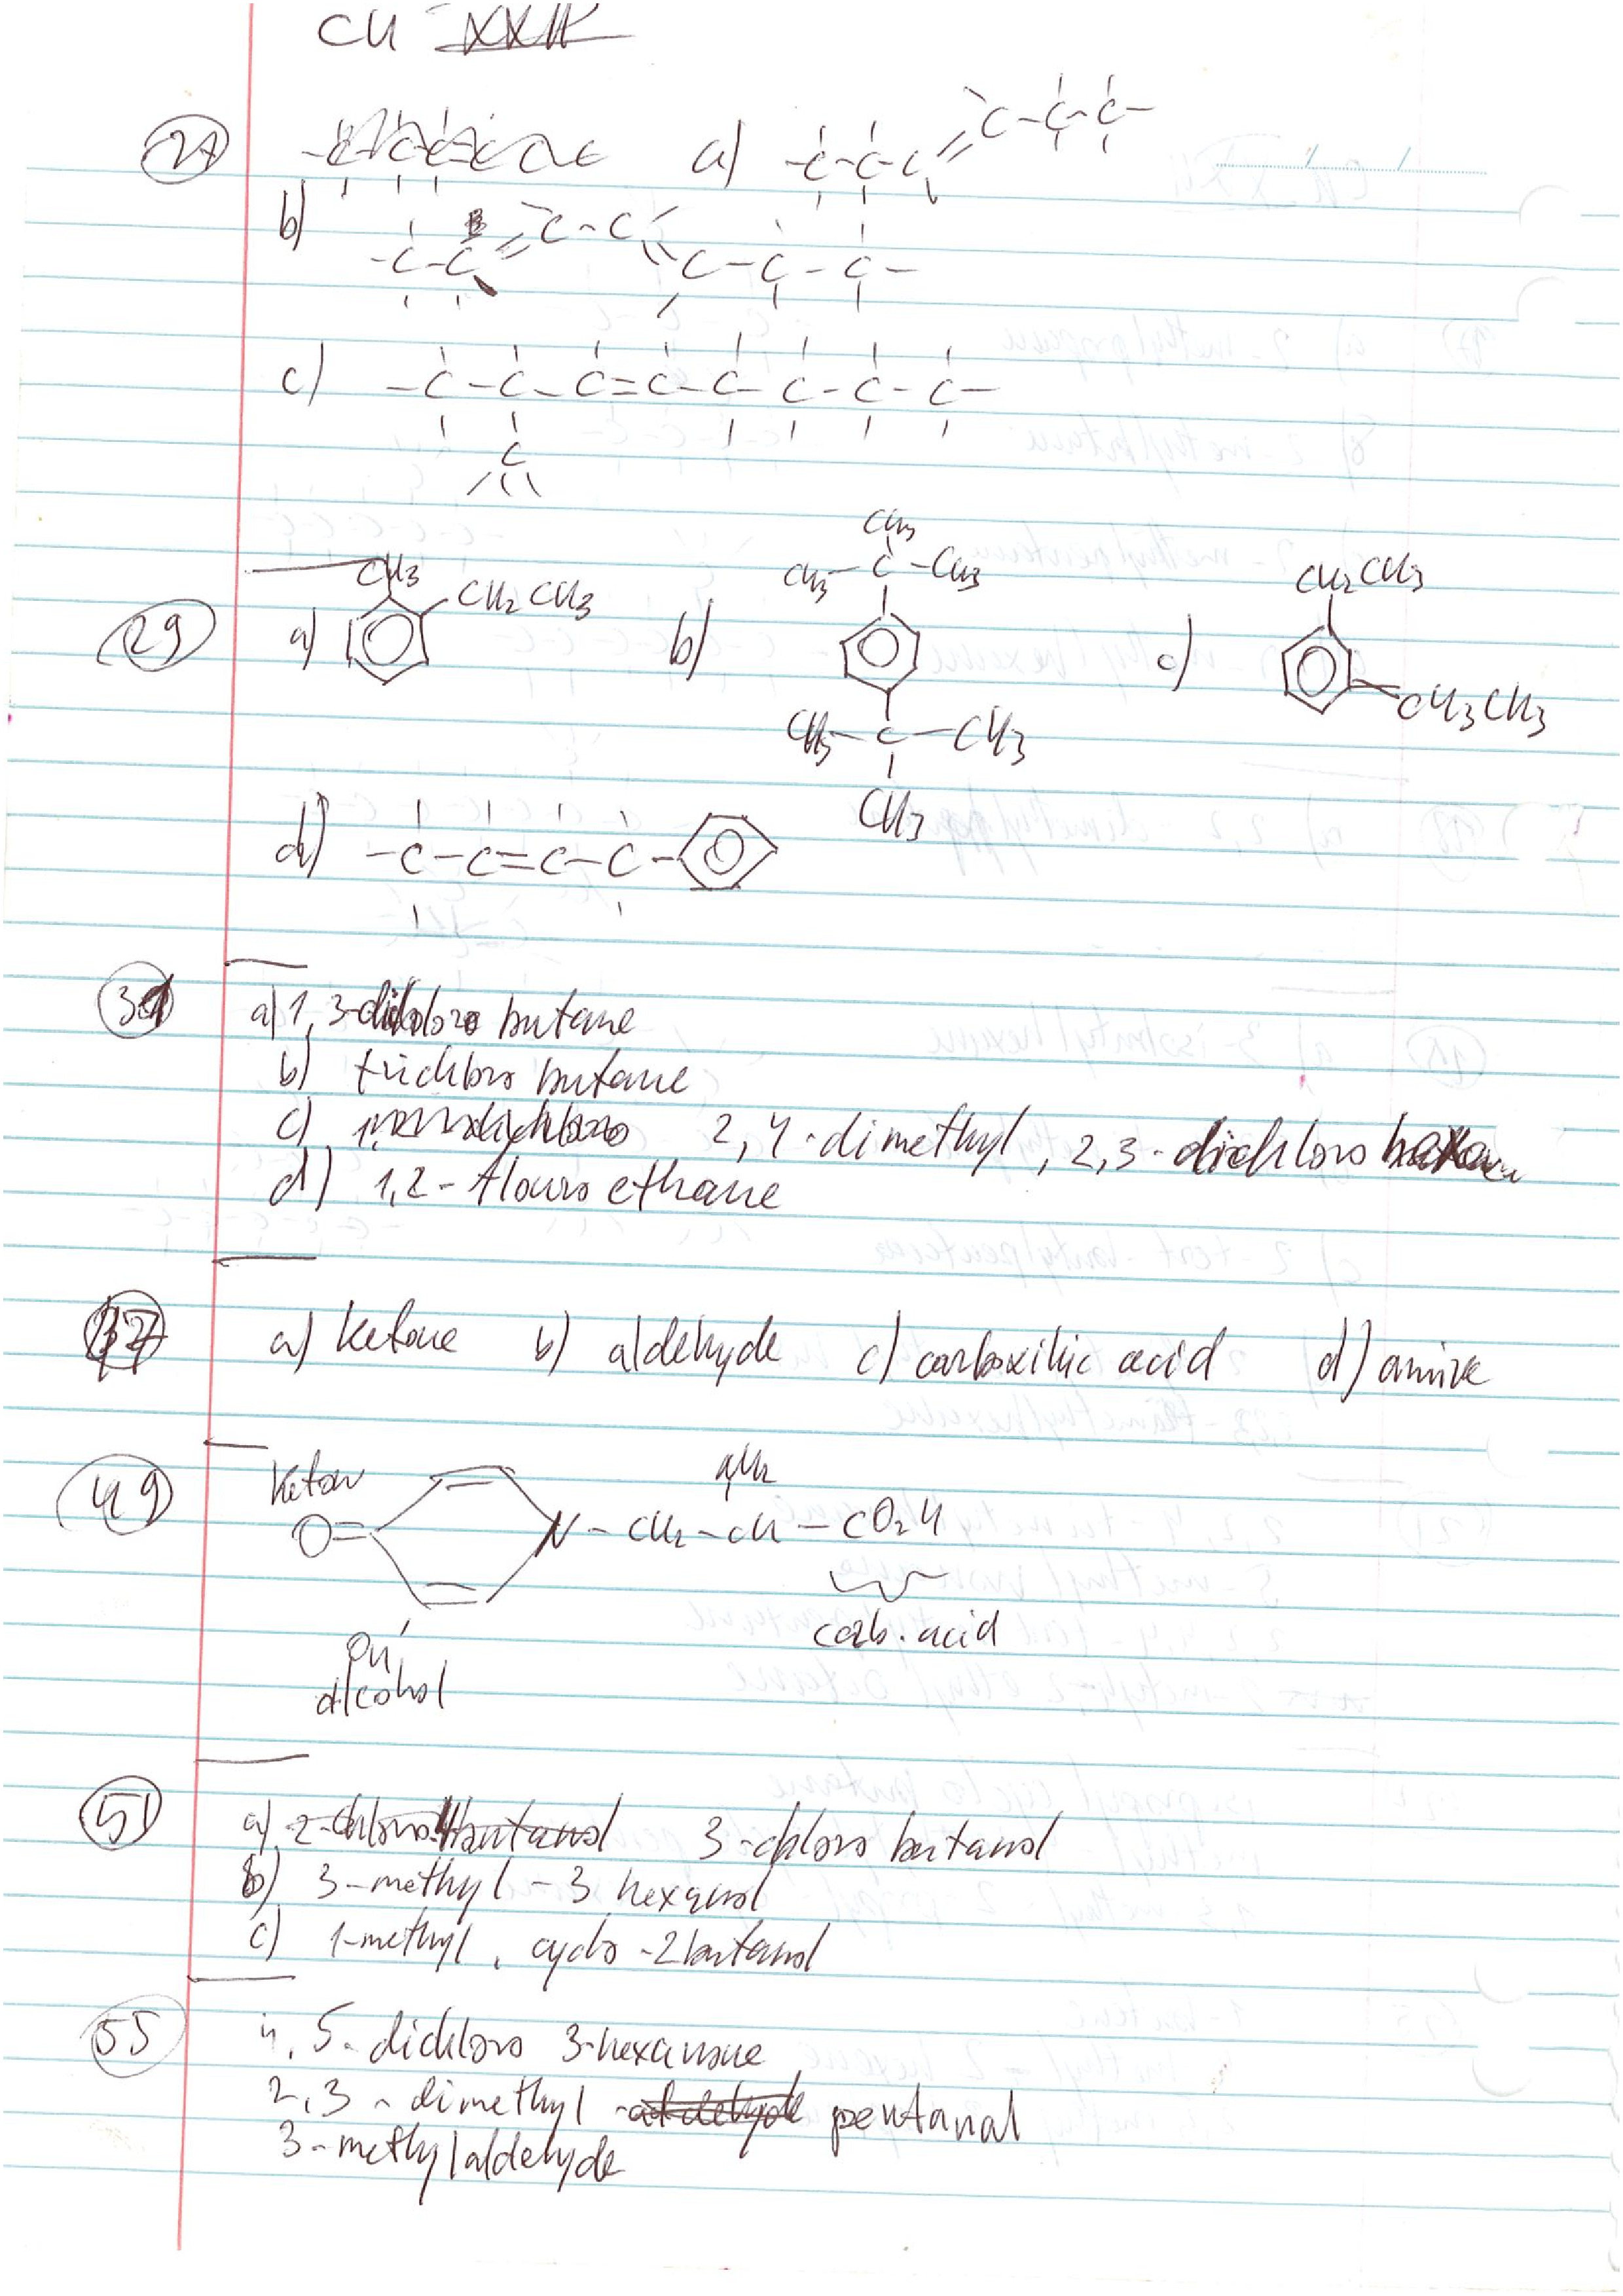 CH XXII
27 a) -C-C-C=C-C-C-
b) -C-C=C-C=C-C-C-
c) -C-C-C=C-C-C-C-C-
C
29 a) CH3 CH2CH3 b) CH3 CH3-C-CH3 CH3-C-CH3 CH3 c) CH2CH3 CH3CH3
d) -C-C=C-C-
31 a) 1,3-dichloro butane
b) trichloro butane
c) 2,4-dimethyl, 2,3-dichloro
d) 1,2-flouro ethane
a) ketone b) aldehyde c) carboxilic acid d) amine
49 Keton O= N-CH2-CH-CO2H
carb. acid
OH
alcohol
51 a) 2-chloro butanol 3-chloro butanol
b) 3-methyl-3 hexanol
c) 1-methyl, cyclo-2butanol
55 4,5-dichloro 3-hexanone
2,3-dimethyl aldehyde pentanal
3-methylaldehyde